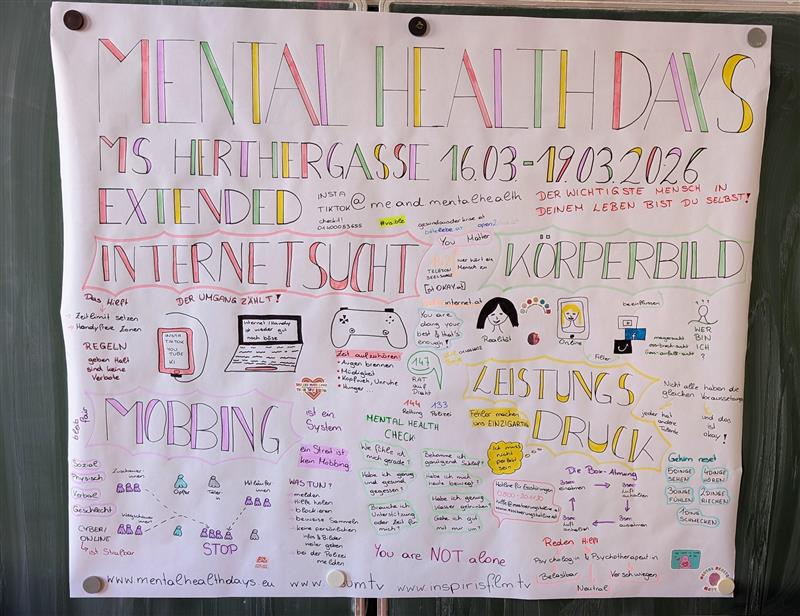 MENTAL HEALTH DAYS
MS HERTHERGASSE 16.03.-19.03.2026
EXTENDED
INSTA
TIKTOK @meandmentalhealth
DER WICHTIGSTE MENSCH IN
DEINEM LEBEN BIST DU SELBST!
INTERNETSUCHT
Das Hilft
DER UMGANG ZÄHLT!
→ Zeitlimit setzen
→ Handyfreie Zonen
REGELN
geben Halt
sind keine
Verbote
INSTA
TIKTOK
YOU
TUBE
KI
Internet/Handy
ist weder gut
noch böse
Zeit aufzuhören!
• Augen brennen
• Müdigkeit
• Kopfweh, Unruhe
• Hunger...
You Matter
TELEFON
SEELSORGE
wer hört ein
Mensch zu
OKAY.at
internet.at
You are
doing your
best & that's
enough!
147
RAT
auf
Draht
144
Rettung
133
Polizei
KÖRPERBILD
Realität
Online
Filter
beeinflussen
WER
BIN
ICH
?
LEISTUNGS
DRUCK
Fehler machen
uns EINZIGARTIG
Ich muss
nicht
perfekt
sein
Nicht alle haben die
gleichen Voraussetzungen
jeder hat
andere
Talente
und das
ist
okay!
bleib fair
MOBBING
ist ein
System
ein Streit ist
kein Mobbing
Sozial
Physisch
Verbal
Geschlecht
CYBER/
ONLINE
→ ist strafbar
Zuschauer
innen
Opfer
Täter
in
Mitläufer
innen
Wegschauer
innen
STOP
WAS TUN?
melden
Hilfe holen
blockieren
beweise sammeln
keine persönlichen
Infos & Bilder
weiter geben
bei der Polizei
melden
MENTAL HEALTH
CHECK:
Wie fühle ich
mich gerade?
Bekomme ich
genügend Schlaf?
Habe ich genug
und gesund
gegessen?
Habe ich mich
bewegt?
Brauche ich
Unterstützung
oder Zeit für
mich?
Habe ich genug
Wasser getrunken
Gehe ich gut
mit mir um?
Hotline für Essstörungen
0800-20 11 20
Die Box-Atmung
3sec
einatmen
3sec
Luft
anhalten
3sec
ausatmen
3sec
Luft
anhalten
Gehirn reset
5 DINGE
SEHEN
4 DINGE
HÖREN
3 DINGE
FÜHLEN
2 DINGE
RIECHEN
1 DING
SCHMECKEN
Reden Hilft
Psycholog:in & Psychotherapeut:in
Belastbar
Verschwiegen
Neutral
You are NOT alone
www.mentalhealthdays.eu
www.inspirisfilm.tv